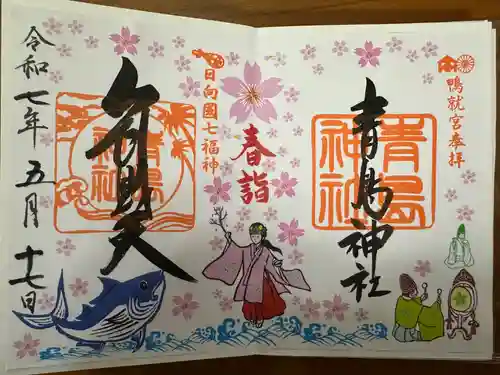 鴨就宮奉拝
青島神社
青島
神社
春詣
日向國七福神
弁財天
青島
神社
令和七年五月十七日